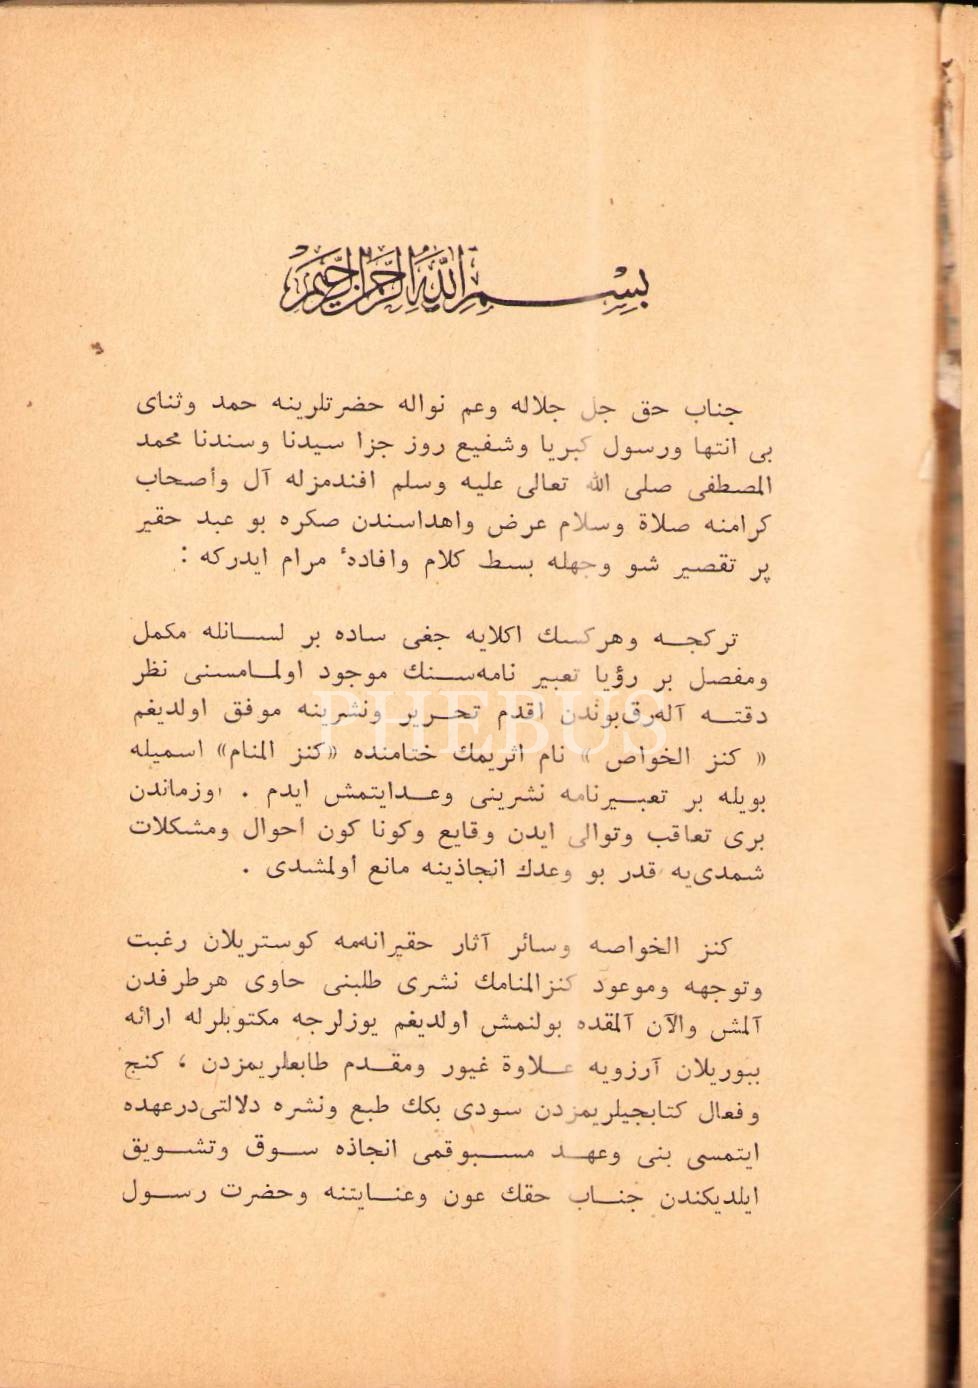 بِسْمِ اللّٰهِ الرَّحْمٰنِ الرَّحِيمِ
جناب حق جل جلاله وعم نواله حضرتلرینه حمد وثنای
بی انتها ورسول كبریا وشفیع روز جزا سیدنا وسندنا محمد
المصطفی صلی الله تعالی علیه وسلم افندمزله آل وأصحاب
كرامنه صلاة وسلام عرض واهداسندن صكره بو عبد حقیر
پر تقصیر شو وجهله بسط كلام وافادهٔ مرام ایدركه :
تركجه وهركسك اكلایه جغی ساده بر لسانله مكمل
ومفصل بر رؤیا تعبیر نامه‌سنك موجود اولمامسنی نظر
دقته آله‌رق بوندن اقدم تحریر ونشرینه موفق اولدیغم
« كنز الخواص » نام اثریمك ختامنده «كنز المنام» اسمیله
بویله بر تعبیرنامه نشرینی وعدایتمش ایدم . اوزماندن
بری تعاقب وتوالی ایدن وقایع وكونا كون احوال ومشكلات
شمدی‌یه قدر بو وعدك انجاذینه مانع اولمشدی .
كنز الخواصه وسائر آثار حقیرانه‌مه كوستریلان رغبت
وتوجهه وموعود كنزالمنامك نشری طلبنی حاوی هرطرفدن
آلمش والآن آلمقده بولنمش اولدیغم یوزلرجه مكتوبلرله ارائه
بیوریلان آرزویه علاوة غیور ومقدم طابعلریمزدن ، كنج
وفعال كتابجیلریمزدن سودی بكك طبع ونشره دلالتی‌درعهده
ایتمسی بنی وعهد مسبوقمی انجاذه سوق وتشویق
ایلدیكندن جناب حقك عون وعنایتنه وحضرت رسول
PHEBUS